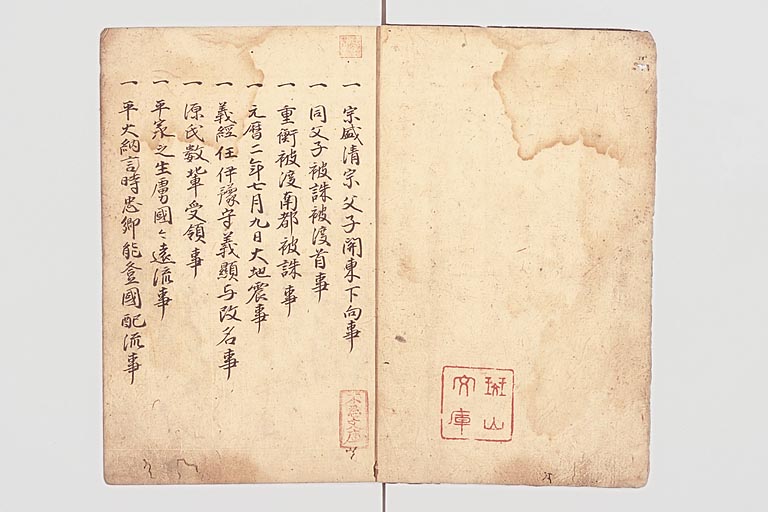 斑山
文庫
一 宗盛清宗父子關東下向事
一 同父子被誅被渡首事
一 重衡被渡南都被誅事
一 元暦二年七月九日大地震事
一 義經任伊豫守義顯与改名事
一 源氏数輩受領事
一 平家之生虜國々遠流事
一 平大納言時忠卿能登國配流事